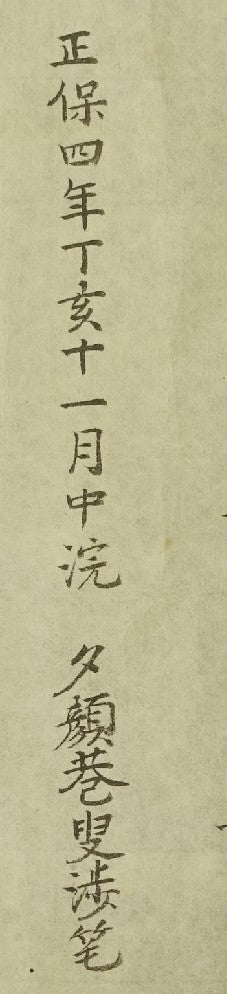 正保四年丁亥十一月中浣 夕顔巷叟渉笔